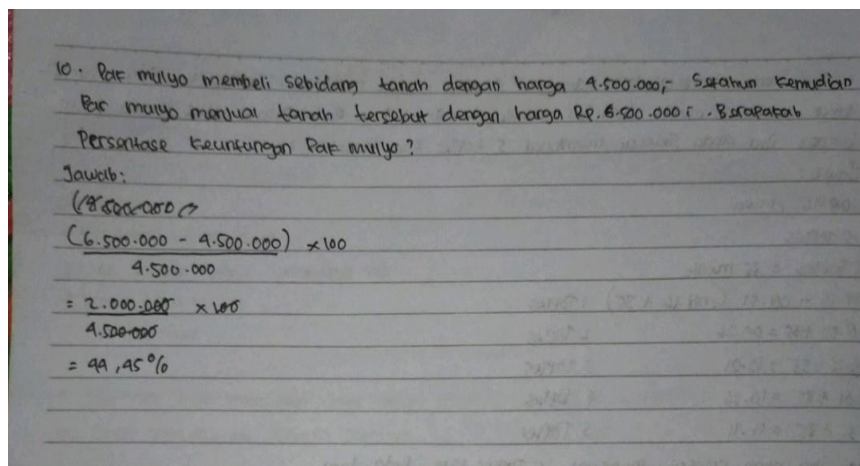 10. Pak mulyo membeli sebidang tanah dengan harga 4.500.000,- Setahun kemudian
Pak mulyo menjual tanah tersebut dengan harga Rp. 6.500.000,-. Berapakah
Persentase keuntungan Pak mulyo?
Jawab:
(6.500.000 - 4.500.000) x 100
4.500.000
= 2.000.000 x 100
4.500.000
= 44,45%